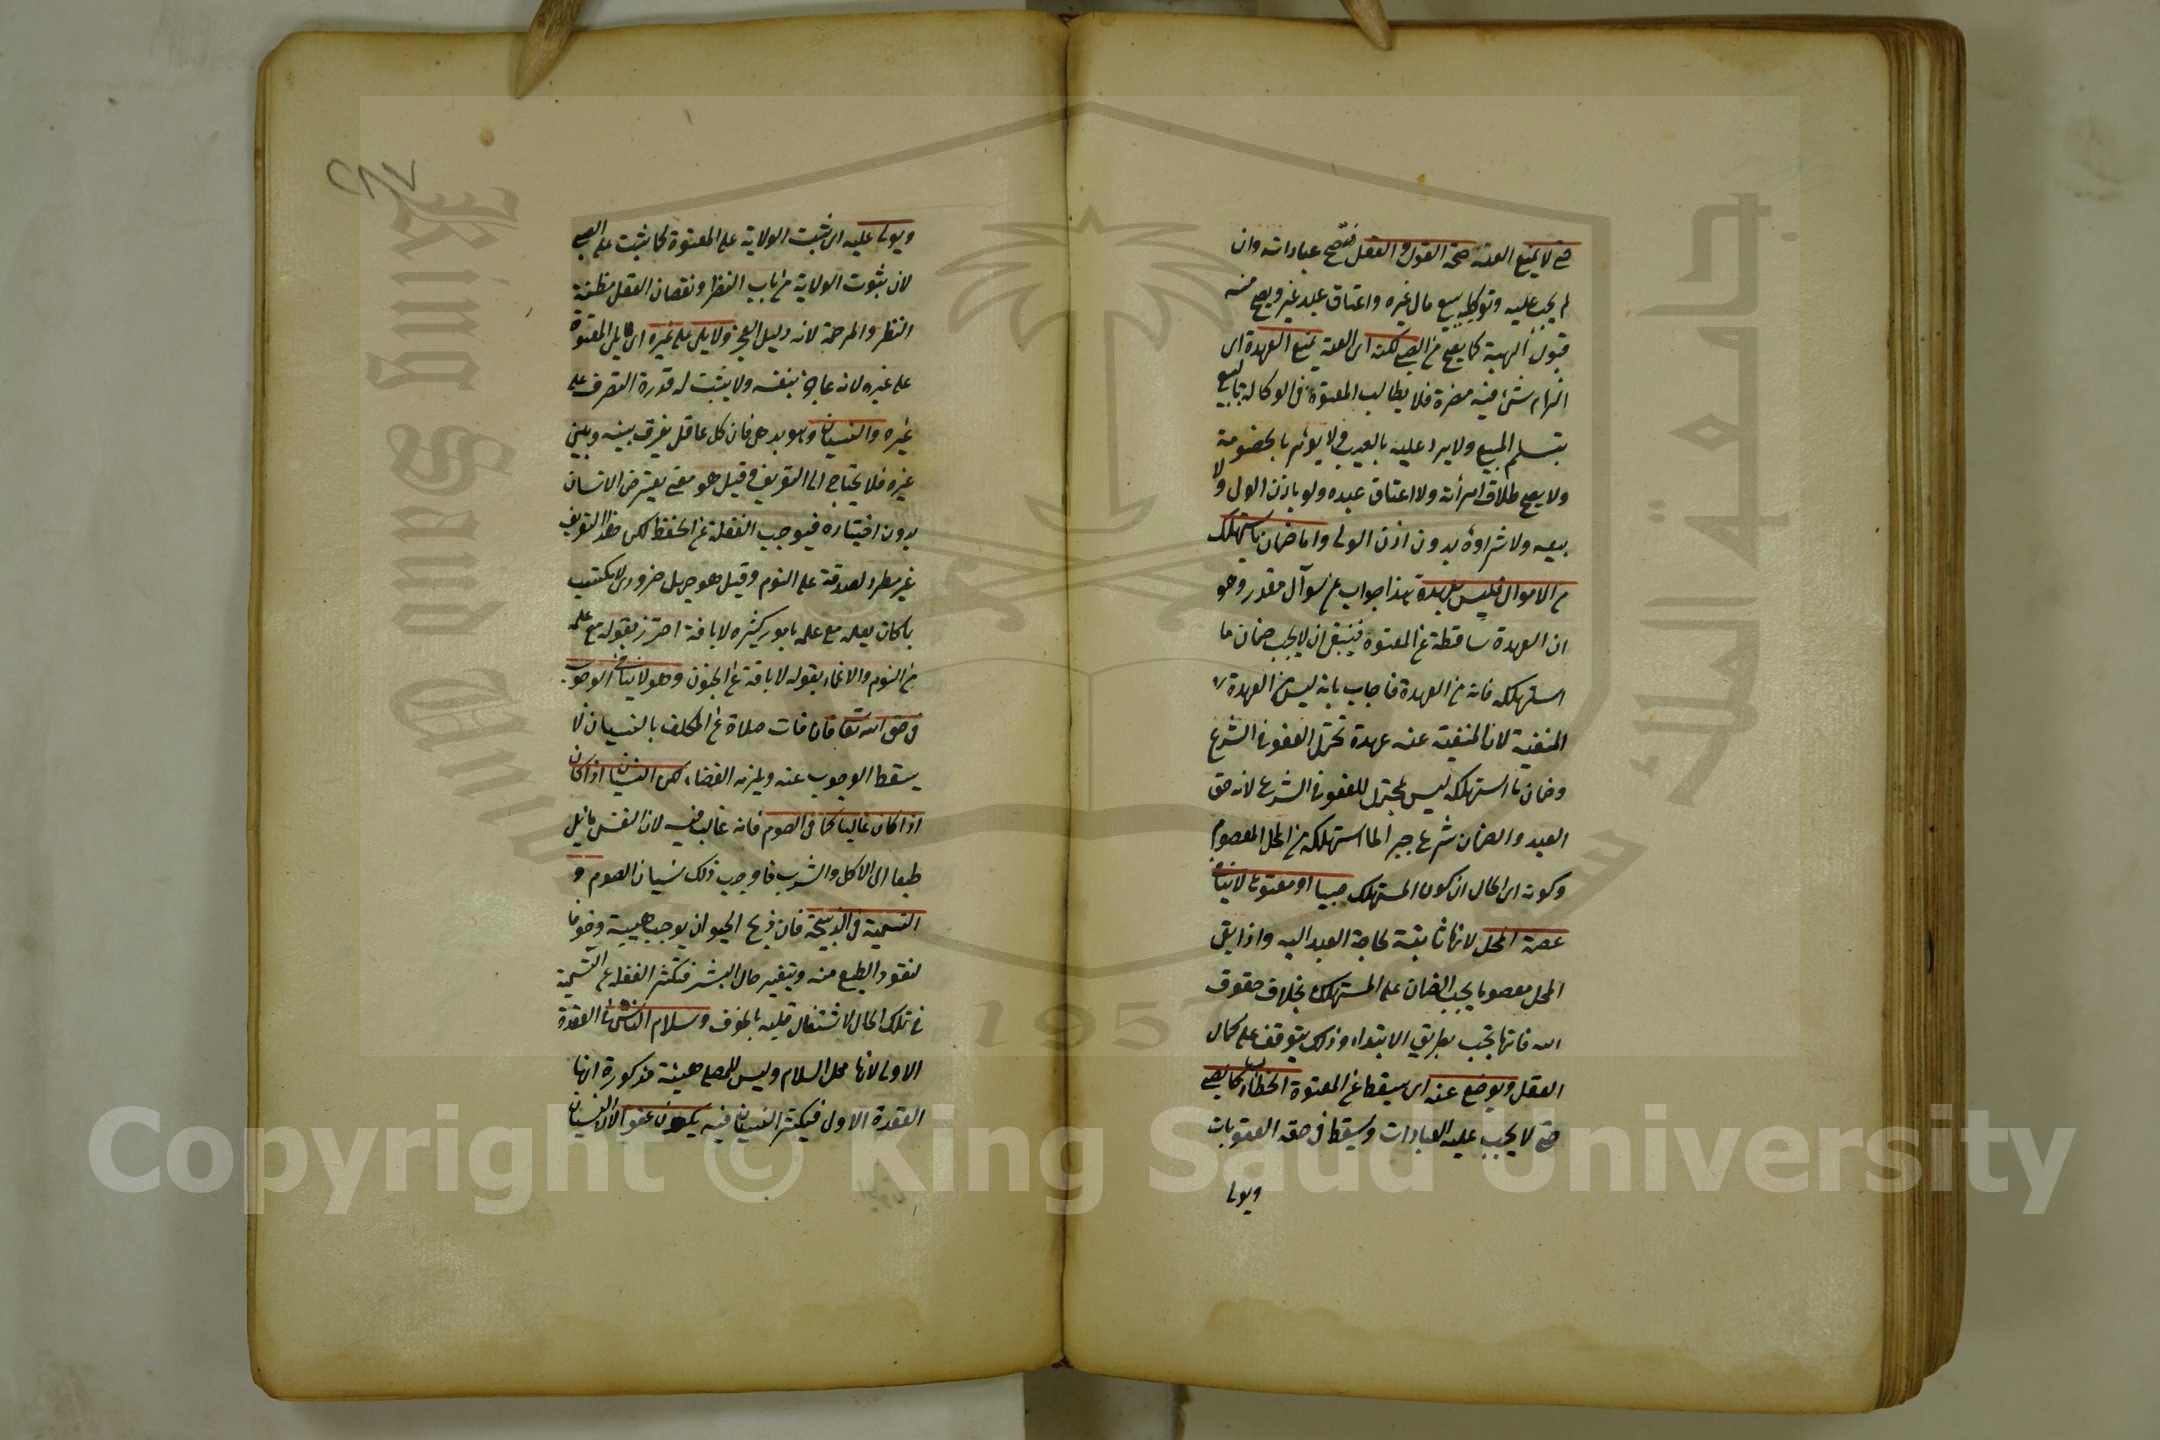 حتى لا يمنع العته صحة القول والفعل فتصح عباداته وان
لم يجب عليه وتوكيله ببيع مال غيره واعتاق عبد غيره ويصح منه
قبول الهبة كما يصح من الصبي لكنه اى العته يمنع العهدة اى
الزام شئ فيه مضرة فلا يطالب المعتوه فى الوكالة بالبيع
بتسليم المبيع ولا يرد عليه بالعيب ولا يؤمر بالخصومة
ولا يصح طلاق امرأته ولا اعتاق عبده ولو باذن الولى ولا
بيعه ولا شراؤه بدون اذن الولى واما ضمان ما يستهلك
من الاموال فليس بعهدة هذا جواب عن سوآل مقدر وهو
ان العهدة ساقطة عن المعتوه فينبغى ان لا يجب ضمان ما
استهلكه فانه من العهدة فاجاب بانه ليس من العهدة
المنفية لان المنفية عنه عهدة تحتمل العفو فى الشرع
وضمان ما استهلكه ليس بمحتمل للعفو فى الشرع لانه حق
العبد والضمان شرع جبرا لما استهلكه من المحل المعصوم
وكونه اى الحال ان كون المستهلك صبيا او معتوها لا ينافى
عصمة المحل لانها ثابتة لحاجة العبد اليه واذا بقى
المحل معصوما يجب الضمان على المستهلك بخلاف حقوق
الله فانها تجب بطريق الابتداء وذلك يتوقف على كمال
العقل ويوضع عنه اى يسقط عن المعتوه الخطاب كالصبى
حتى لا يجب عليه العبادات ويسقط فى حقه العقوبات
ويولى
ويولى عليه اى تثبت الولاية على المعتوه كما يثبت على الصبى
لان ثبوت الولاية من باب النظر ونقصان العقل مظنة
النظر والمرحمة لانه دليل العجز ولا يلى على غيره اى لا يلى المعتوه
على غيره لانه عاجز بنفسه ولا يثبت له قدرة التصرف على
غيره والنسيان وهو بديهى فان كل عاقل يفرق بينه وبين
غيره فلا يحتاج الى التعريف وقيل هو معنى يعترض الانسان
بدون اختياره فيوجب الغفلة عن الحفظ لكن هذا التعريف
غير مطرد لصدقه على النوم وقيل هو جهل ضرورى لا يكتسب
بما كان يعلمه مع علمه بامور كثيرة لا بافة احترز بقوله مع علمه
من النوم والاغماء بقوله لا بافة عن الجنون وهو لا ينافى الوجوب
فى حق الله تعا فان فات صلاة عن المكلف بالنسيان لا
يسقط الوجوب عنه ويلزمه القضاء لكن النسيان اذا كان
اذا كان غالبا كما فى الصوم فانه غالب فيه لان النفس مائل
طبعا الى الاكل والشرب فاوجب ذلك نسيان الصوم و
التسمية فى الذبيحة فان ذبح الحيوان يوجب هيبة وخوفا
لنفور الطبع منه وبتغير حال البشر فتكثر الغفلة عن التسمية
فى تلك الحال لاشتغال قلبه بالخوف وسلام الناسى فى القعدة
الاولى لانها محل السلام وليس للمصلى هيئة مذكورة انها
القعدة الاولى فيكثر النسيان فيه يكون عفوا لان النسيان
Copyright © King Saud University
King Saud University
1957